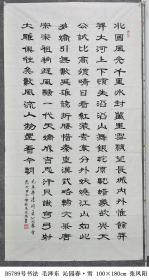 北國風光千里冰封萬里雪飄望長城內外惟餘莽
莽大河上下頓失滔滔山舞銀蛇原馳蠟象欲與天
公試比高須晴日看紅裝素裹分外妖嬈江山如此
多嬌引無數英雄競折腰惜秦皇漢武略輸文采唐
宗宋祖稍遜風騷一代天驕成吉思汗只識彎弓射
大雕俱往矣數風流人物還看今朝
B5789号书法 毛泽东 沁园春·雪 100×180cm 张凤阳